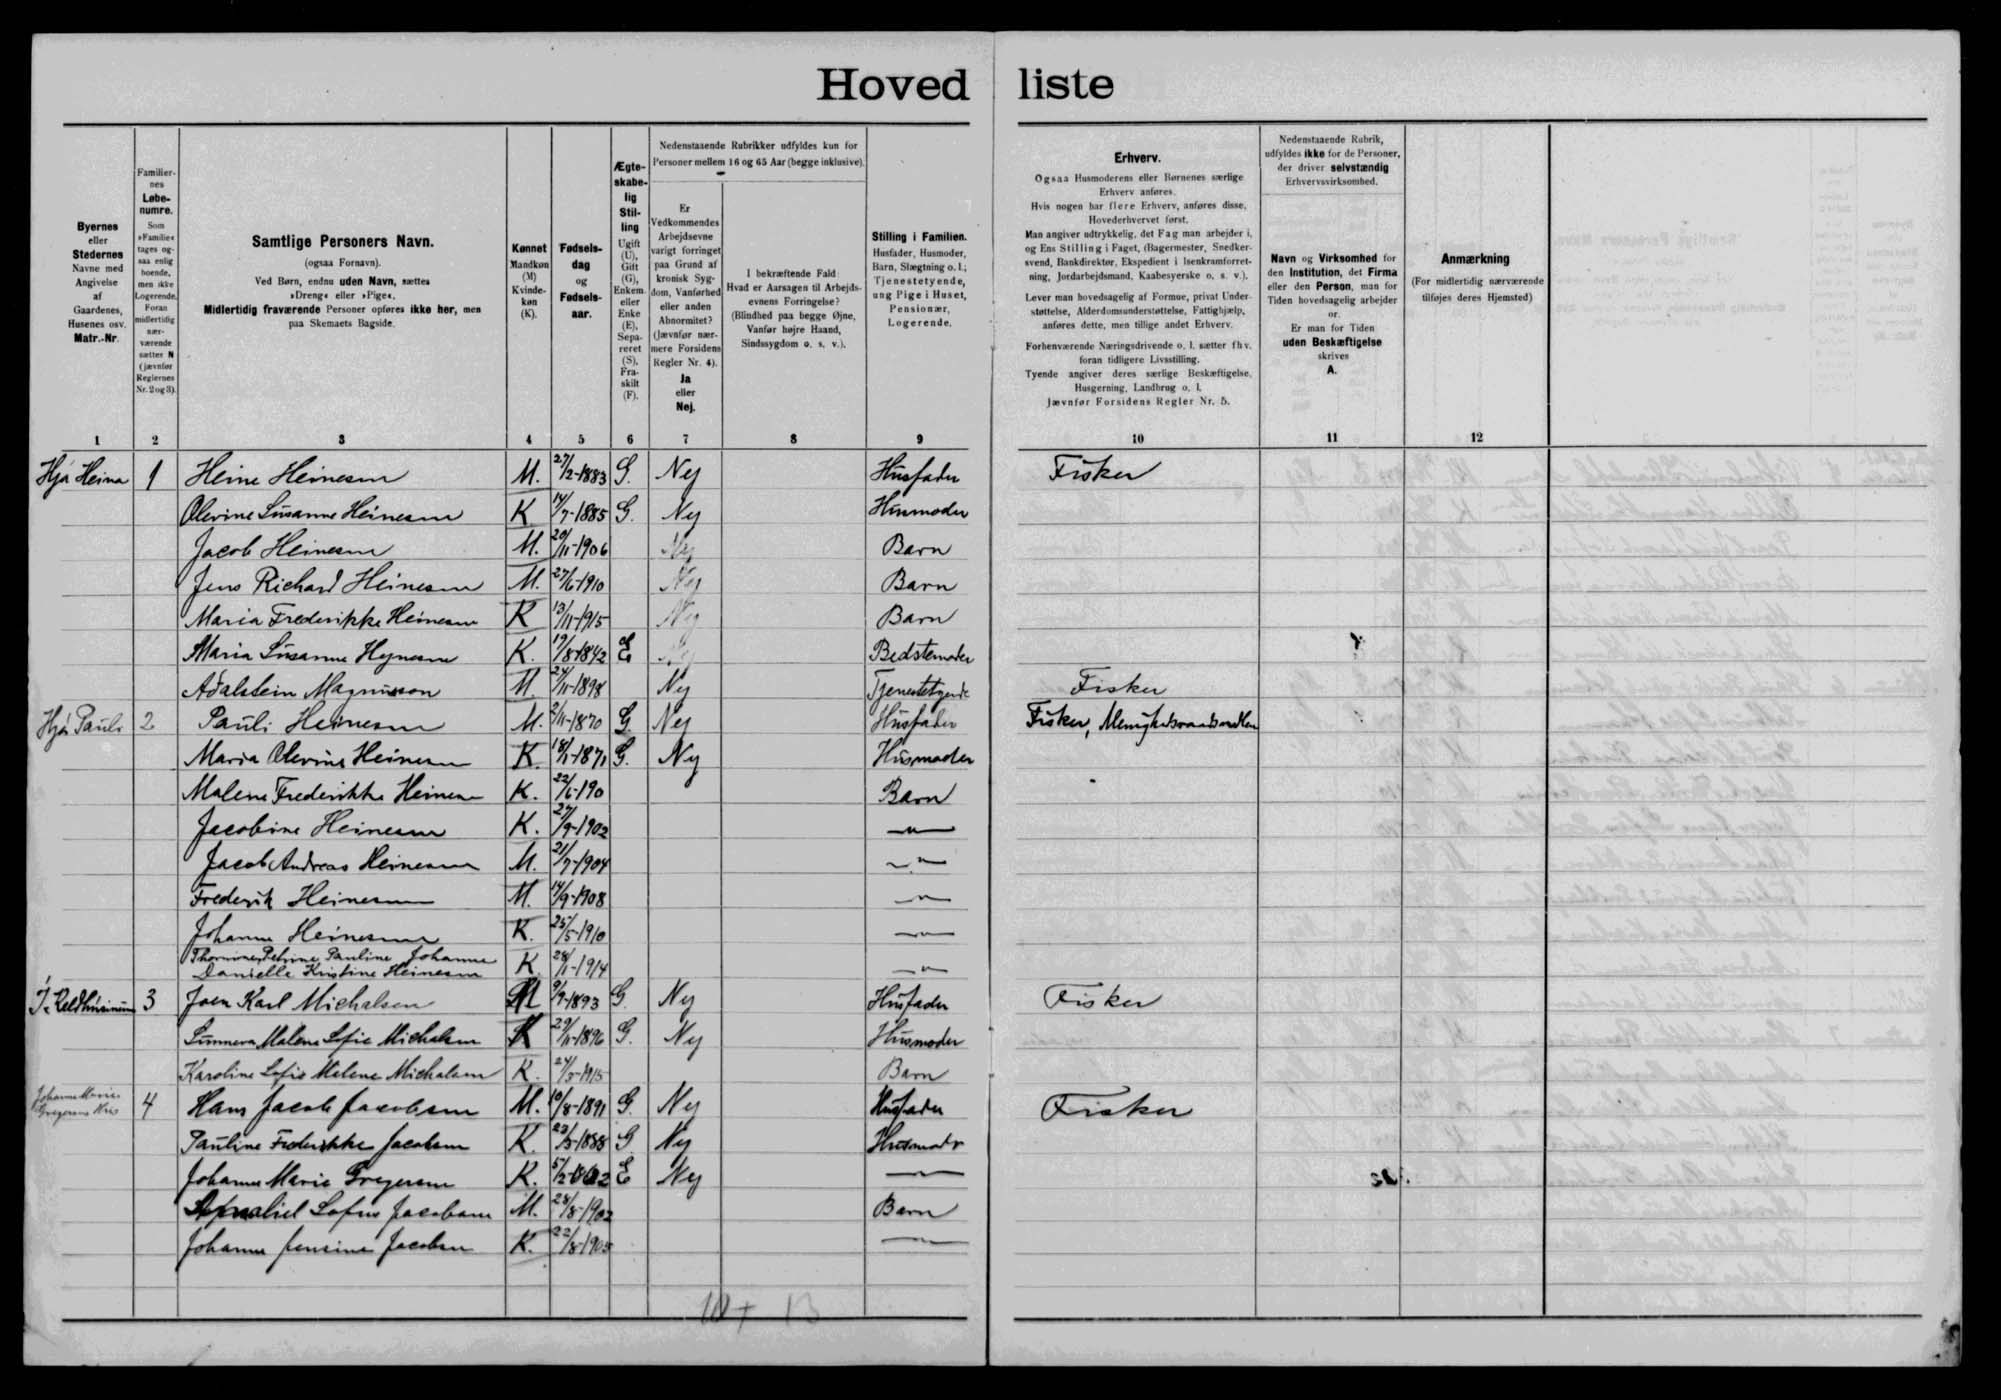 Hovedliste
Byernes
eller
Stedernes
Navne med
Angivelse
af
Gaardenes,
Husenes osv.
Matr.-Nr.
Familier-
nes
Løbe-
numre.
Som
»Familie«
tages og-
saa enlig
boende,
men ikke
Logerende,
Foran
midlertidig
nær-
værende
sætter N
(jævnfør
Reglernes
Nr. 2 og 3).
Samtlige Personers Navn.
(ogsaa Fornavn).
Ved Børn, endnu uden Navn, sættes
»Dreng« eller »Pige«.
Midlertidig fraværende Personer opføres ikke her, men
paa Skemaets Bagside.
Kønnet
Mandkøn
(M)
Kvinde-
køn
(K).
Fødsels-
dag
og
Fødsels-
aar.
Ægte-
skabe-
lig
Stil-
ling
Ugift
(U),
Gift
(G),
Enkem.
eller
Enke
(E),
Sepa-
reret
(S),
Fra-
skilt
(F).
Nedenstaaende Rubrikker udfyldes kun for
Personer mellem 16 og 65 Aar (begge inklusive).
Er
Vedkommendes
Arbejdsevne
varigt forringet
paa Grund af
kronisk Syg-
dom, Vanførhed
eller anden
Abnormitet?
(Jævnfør nær-
mere Forsidens
Regler Nr. 4).
Ja
eller
Nej.
I bekræftende Fald:
Hvad er Aarsagen til Arbejds-
evnens Forringelse?
(Blindhed paa begge Øjne,
Vanfør højre Haand,
Sindssygdom o. s. v.).
Stilling i Familien.
Husfader, Husmoder,
Barn, Slægtning o. l.;
Tjenestetyende,
ung Pige i Huset,
Pensionær,
Logerende.
Erhverv.
Ogsaa Husmoderens eller Børnenes særlige
Erhverv anføres.
Hvis nogen har flere Erhverv, anføres disse,
Hovederhvervet først.
Man angiver udtrykkelig, det Fag man arbejder i,
og Ens Stilling i Faget, (Bagermester, Snedker-
svend, Bankdirektør, Ekspedient i Isenkramforret-
ning, Jordarbejdsmand, Kaabesyerske o. s. v.).
Lever man hovedsagelig af Formue, privat Under-
støttelse, Alderdomsunderstøttelse, Fattighjælp,
anføres dette, men tillige andet Erhverv.
Forhenværende Næringsdrivende o. l. sætter fhv.
foran tidligere Livsstilling.
Tyende angiver deres særlige Beskæftigelse,
Husgerning, Landbrug o. l.
Jævnfør Forsidens Regler Nr. 5.
Nedenstaaende Rubrik,
udfyldes ikke for de Personer,
der driver selvstændig
Erhvervsvirksomhed.
Navn og Virksomhed for
den Institution, det Firma
eller den Person, man for
Tiden hovedsagelig arbejder
for.
Er man for Tiden
uden Beskæftigelse
skrives
A.
Anmærkning
(For midlertidig nærværende
tilføjes deres Hjemsted)
1 2 3 4 5 6 7 8 9 10 11 12
Hjá Heina 1 Heine Heinesen M. 27/2-1883 G. Nej Husfader Fisker
Olevine Susanne Heinesen K 14/7-1885 G. Nej Husmoder
Jacob Heinesen M. 20/11-1906 Nej Barn
Jens Richard Heinesen M. 27/6-1910 Nej Barn
Maria Frederikke Heinesen K 13/11-1915 Nej Barn
Maria Susanne Heynesen K. 19/8-1842 E Nej Bedstemoder
Adalstein Magnusson M. 24/11-1898 Nej Tjenestetyende Fisker
Hjá Pauli 2 Pauli Heinesen M. 2/11-1870 G. Nej Husfader Fisker, Menighedsraadsmedlem
Maria Olevine Heinesen K. 18/1-1871 G. Nej Husmoder
Malene Frederikke Heinesen K. 22/6-190 Barn
Jacobine Heinesen K. 27/9-1902 —"—
Jacob Andreas Heinesen M. 21/7-1904 —"—
Frederik Heinesen M. 14/9-1908 —"—
Johanne Heinesen K. 25/5-1910 —"—
Thomine Petrine Pauline Johanne
Danielle Kristine Heinesen K 28/1-1914 —"—
3 Joen Karl Michalsen M 9/9-1893 G. Nej Husfader Fisker
Sunneva Malene Sofie Michalsen K 29/11-1896 G. Nej Husmoder
Karoline Sofie Malene Michalsen K. 24/3-1915 Barn
Johanne Maries
Gregersens Hus 4 Hans Jacob Jacobsen M. 10/8-1891 G. Nej Husfader Fisker
Pauline Frederikke Jacobsen K. 23/3-1888 G Nej Husmoder
Johanne Marie Gregersen K. E Nej —
Sofus Jacobsen M. 28/8-1902 Barn
Johanne Jensine Jacobsen K. 22/8-1905 —
10 + 13